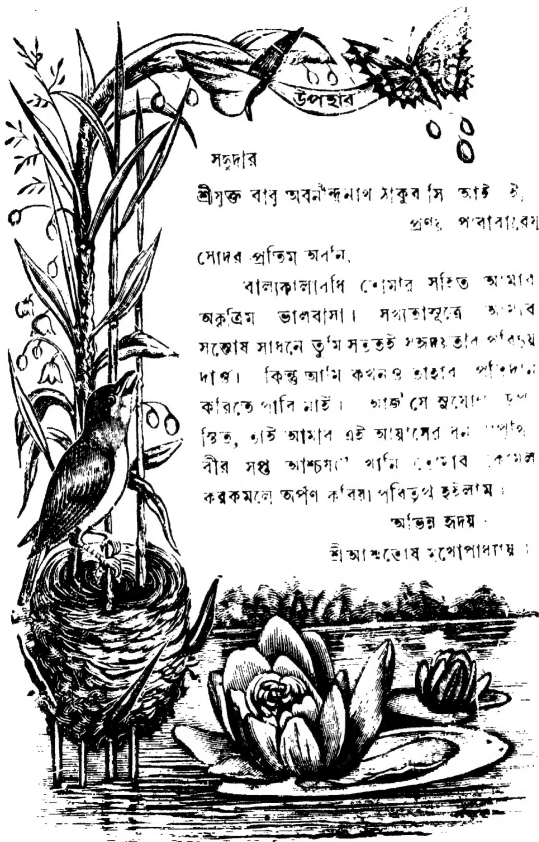 উপহার
সহৃদার
শ্রীযুক্ত বাবু অবনীন্দ্রনাথ ঠাকুর সি আই ই,
প্রণয়
সোদর প্রতিম অবনি,
বাল্যকালাবধি তোমার সহিত আমার
অকৃত্রিম ভালবাসা। সখ্যতাসূত্রে আমার
সন্তোষ সাধনে তুমি সততই সহৃদয়তার পরিচয়
দাও। কিন্তু আমি কখনও তাহার প্রতিদান
করিতে পারি নাই। আজ সে সুযোগ উপ-
স্থিত, তাই আমার এই আয়াসের ধন পৃথি-
বীর সপ্ত আশ্চর্য্য খানি তোমার কোমল
করকমলে অর্পণ করিয়া পরিতৃপ্ত হইলাম।
অভিন্ন হৃদয়
শ্রীআশুতোষ মুখোপাধ্যায়।